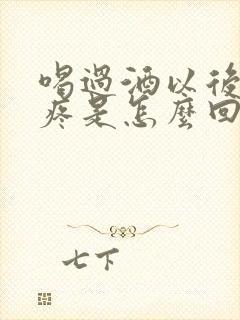 喝過酒以後
疼是怎麼回
七下